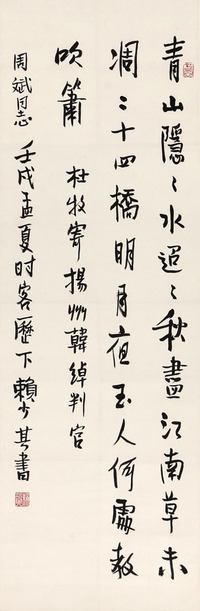 青山隱〻水迢〻秋盡江南草未
凋二十四橋明月夜玉人何處教
吹簫
杜牧寄揚州韓綽判官
周斌同志
壬戌孟夏时客歷下賴少其書